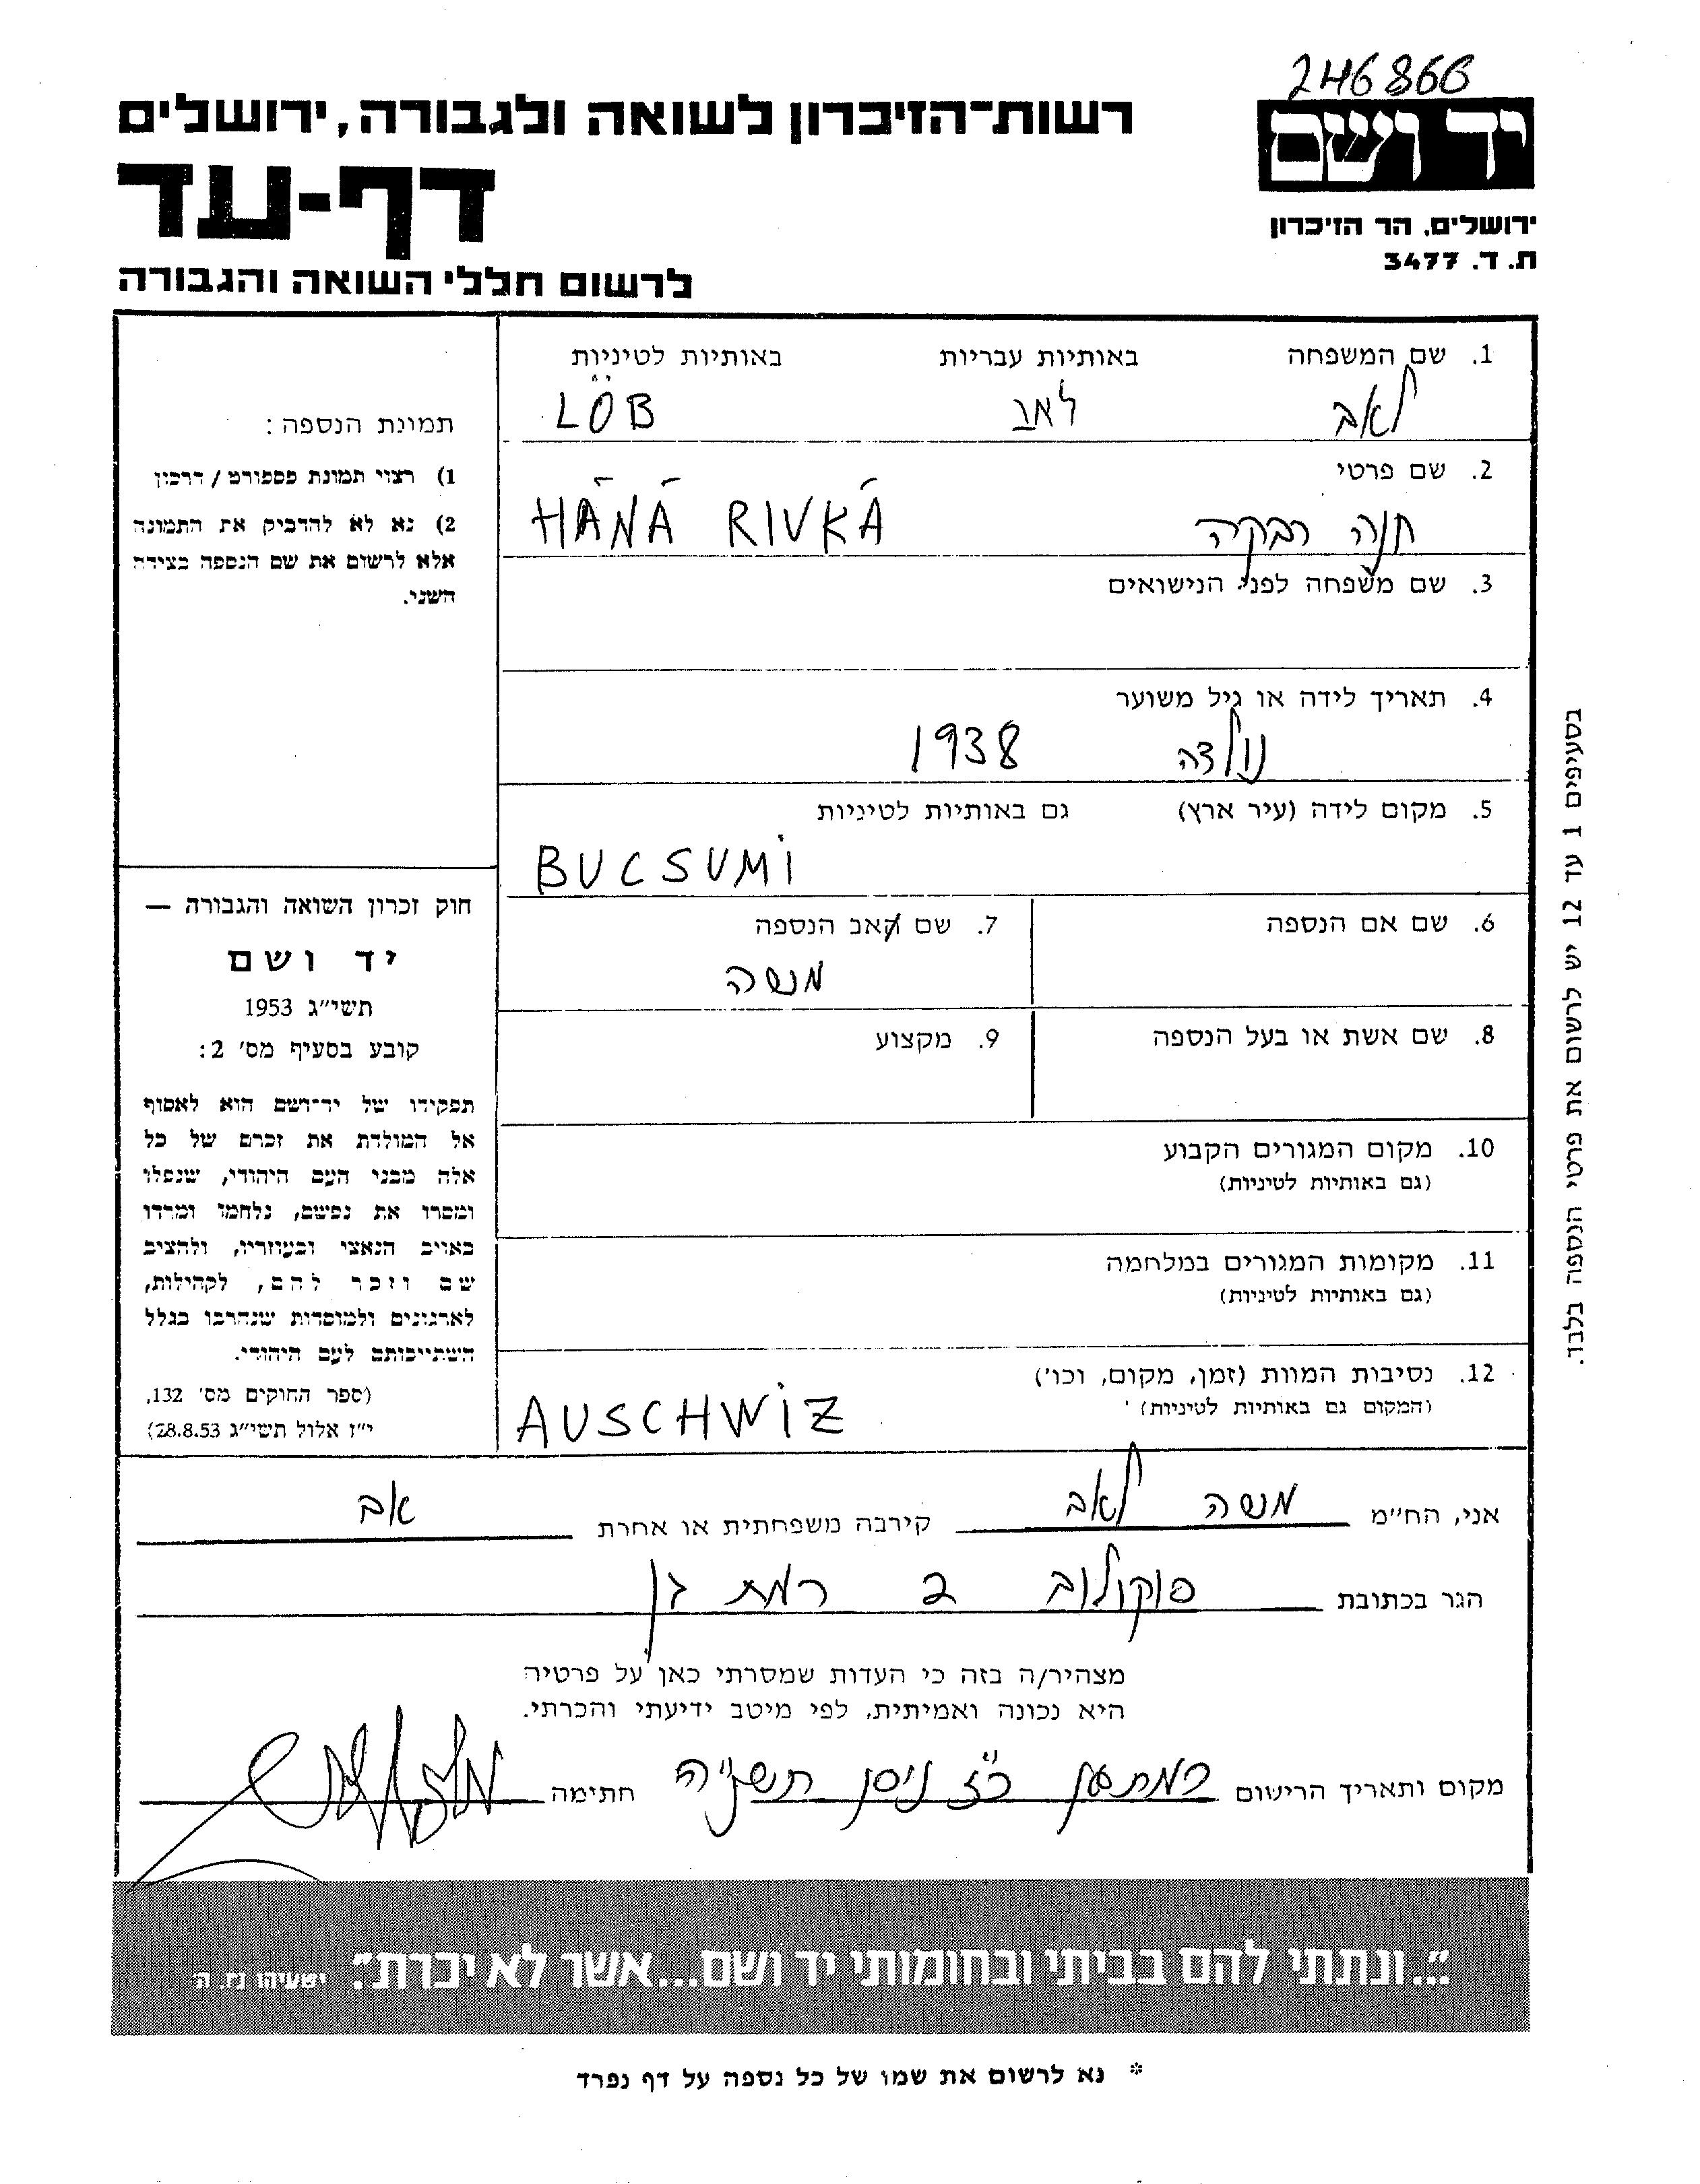 246866
יד ושם
ירושלים, הר הזיכרון
ת. ד. 3477
רשות-הזיכרון לשואה ולגבורה, ירושלים
דף-עד
לרשום חללי השואה והגבורה
1. שם המשפחה באותיות עבריות באותיות לטיניות
לאב לאב LÖB
2. שם פרטי
חנה רבקה HÁNÁ RIVKÁ
3. שם משפחה לפני הנישואים
4. תאריך לידה או גיל משוער
נולדה 1938
5. מקום לידה (עיר ארץ) גם באותיות לטיניות
BUCSUMI
6. שם אם הנספה
7. שם אב הנספה
מנשה
8. שם אשת או בעל הנספה
9. מקצוע
10. מקום המגורים הקבוע
(גם באותיות לטיניות)
11. מקומות המגורים במלחמה
(גם באותיות לטיניות)
12. נסיבות המוות (זמן, מקום, וכו')
(המקום גם באותיות לטיניות)
AUSCHWIZ
תמונת הנספה:
1) רצוי תמונת פספורט / דרכון
2) נא לא להדביק את התמונה
אלא לרשום את שם הנספה בצידה
השני.
חוק זכרון השואה והגבורה —
יד ושם
תשי"ג 1953
קובע בסעיף מס' 2:
תפקידו של יד-ושם הוא לאסוף
אל המולדת את זכרם של כל
אלה מבני העם היהודי, שנפלו
ומסרו את נפשם, נלחמו ומרדו
באויב הנאצי ובעוזריו, ולהציב
שם וזכר להם, לקהילות,
לארגונים ולמוסדות שנחרבו בגלל
השתייכותם לעם היהודי.
(ספר החוקים מס' 132,
י"ז אלול תשי"ג 28.8.53)
בסעיפים 1 עד 12 יש לרשום את פרטי הנספה בלבד.
אני, הח"מ מנשה לאב קירבה משפחתית או אחרת אב
הגר בכתובת סוקולוב 2 רמת גן
מצהיר/ה בזה כי העדות שמסרתי כאן על פרטיה
היא נכונה ואמיתית, לפי מיטב ידיעתי והכרתי.
מקום ותאריך הרישום כ"ז ניסן חתימה
"...ונתתי להם בביתי ובחומותי יד ושם...אשר לא יכרת". ישעיהו נו, ה
* נא לרשום את שמו של כל נספה על דף נפרד